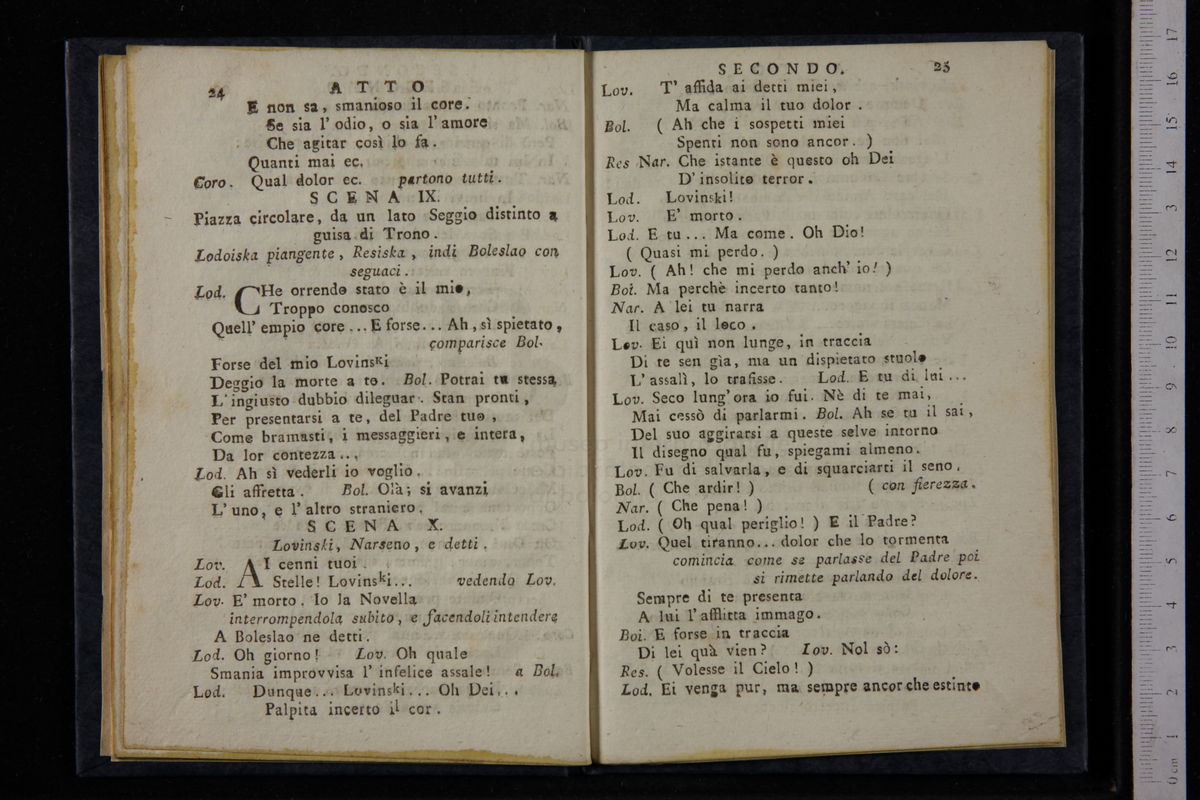 24 ATTO
E non sa, smanioso il core.
Se sia l'odio, o sia l'amore
Che agitar così lo fa.
Quanti mai ec.
Coro. Qual dolor ec. partono tutti.
SCENA IX.
Piazza circolare, da un lato Seggio distinto a
guisa di Trono.
Lodoiska piangente, Resiska, indi Boleslao con
seguaci.
Lod. CHe orrendo stato è il mio,
Troppo conosco
Quell' empio core... E forse... Ah, sì spietato,
comparisce Bol.
Forse del mio Lovinski
Deggio la morte a te. Bol. Potrai tu stessa
L'ingiusto dubbio dileguar. Stan pronti,
Per presentarsi a te, del Padre tuo,
Come bramasti, i messaggieri, e intera,
Da lor contezza...
Lod. Ah sì vederli io voglio.
Gli affretta. Bol. Olà; si avanzi
L'uno, e l'altro straniero.
SCENA X.
Lovinski, Narseno, e detti.
Lov. AI cenni tuoi.
Lod. Stelle! Lovinski... vedendo Lov.
Lov. E' morto. Io la Novella
interrompendola subito, e facendoli intendere
A Boleslao ne detti.
Lod. Oh giorno! Lov. Oh quale
Smania improvvisa l'infelice assale! a Bol.
Lod. Dunque... Lovinski... Oh Dei...
Palpita incerto il cor.
SECONDO. 25
Lov. T'affida ai detti miei,
Ma calma il tuo dolor.
Bol. ( Ah che i sospetti miei
Spenti non sono ancor. )
Res Nar. Che istante è questo oh Dei
D'insolito terror.
Lod. Lovinski!
Lov. E' morto.
Lod. E tu... Ma come. Oh Dio!
( Quasi mi perdo. )
Lov. ( Ah! che mi perdo anch'io! )
Bol. Ma perchè incerto tanto!
Nar. A lei tu narra
Il caso, il loco.
Lov. Ei quì non lunge, in traccia
Di te sen gìa, ma un dispietato stuolo
L'assalì, lo trafisse. Lod. E tu di lui...
Lov. Seco lung'ora io fui. Nè di te mai,
Mai cessò di parlarmi. Bol. Ah se tu il sai,
Del suo aggirarsi a queste selve intorno
Il disegno qual fu, spiegami almeno.
Lov. Fu di salvarla, e di squarciarti il seno.
Bol. ( Che ardir! ) ( con fierezza.
Nar. ( Che pena! )
Lod. ( Oh qual periglio! ) E il Padre?
Lov. Quel tiranno... dolor che lo tormenta
comincia come se parlasse del Padre poi
si rimette parlando del dolore.
Sempre di te presenta
A lui l'afflitta immago.
Boi. E forse in traccia
Di lei quà vien? Lov. Nol sò:
Res. ( Volesse il Cielo! )
Lod. Ei venga pur, ma sempre ancor che estinto